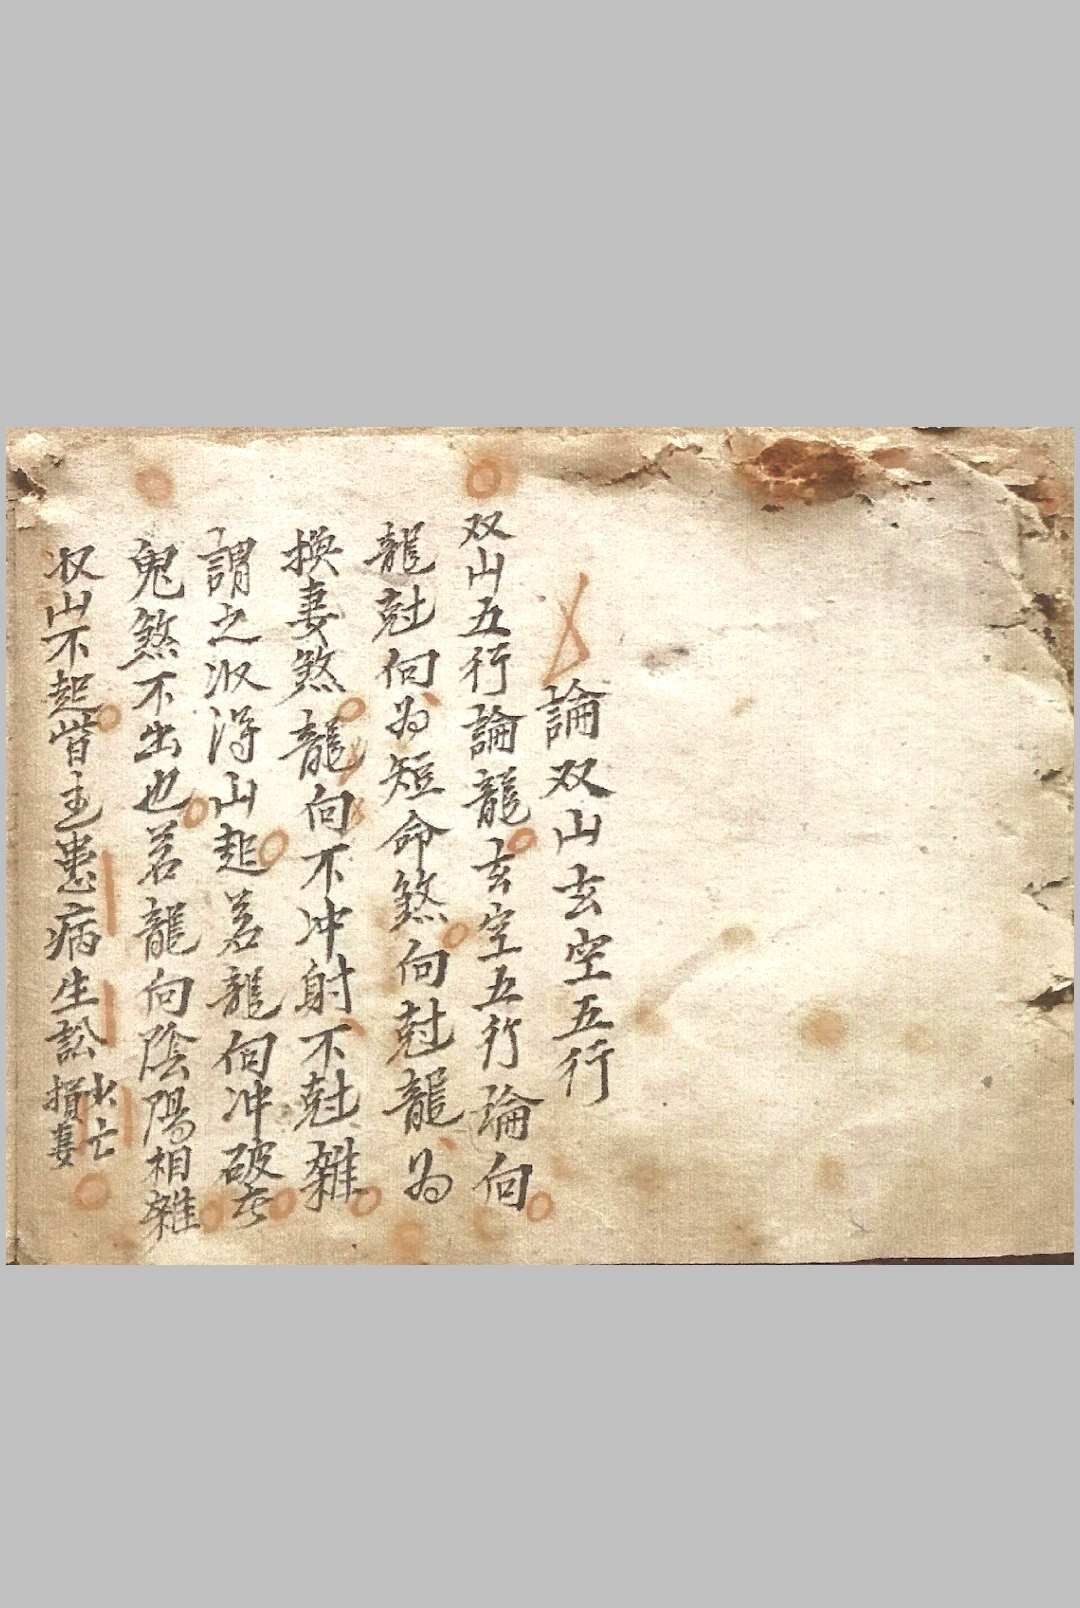 論双山玄空五行
双山五行論龍玄空五行論向
龍尅向為短命煞向尅龍為
換妻煞龍向不冲射不尅雜
謂之收得山起若龍向冲破者
鬼煞不出也若龍向陰陽相雜
收山不起皆主患病生訟火亡損妻